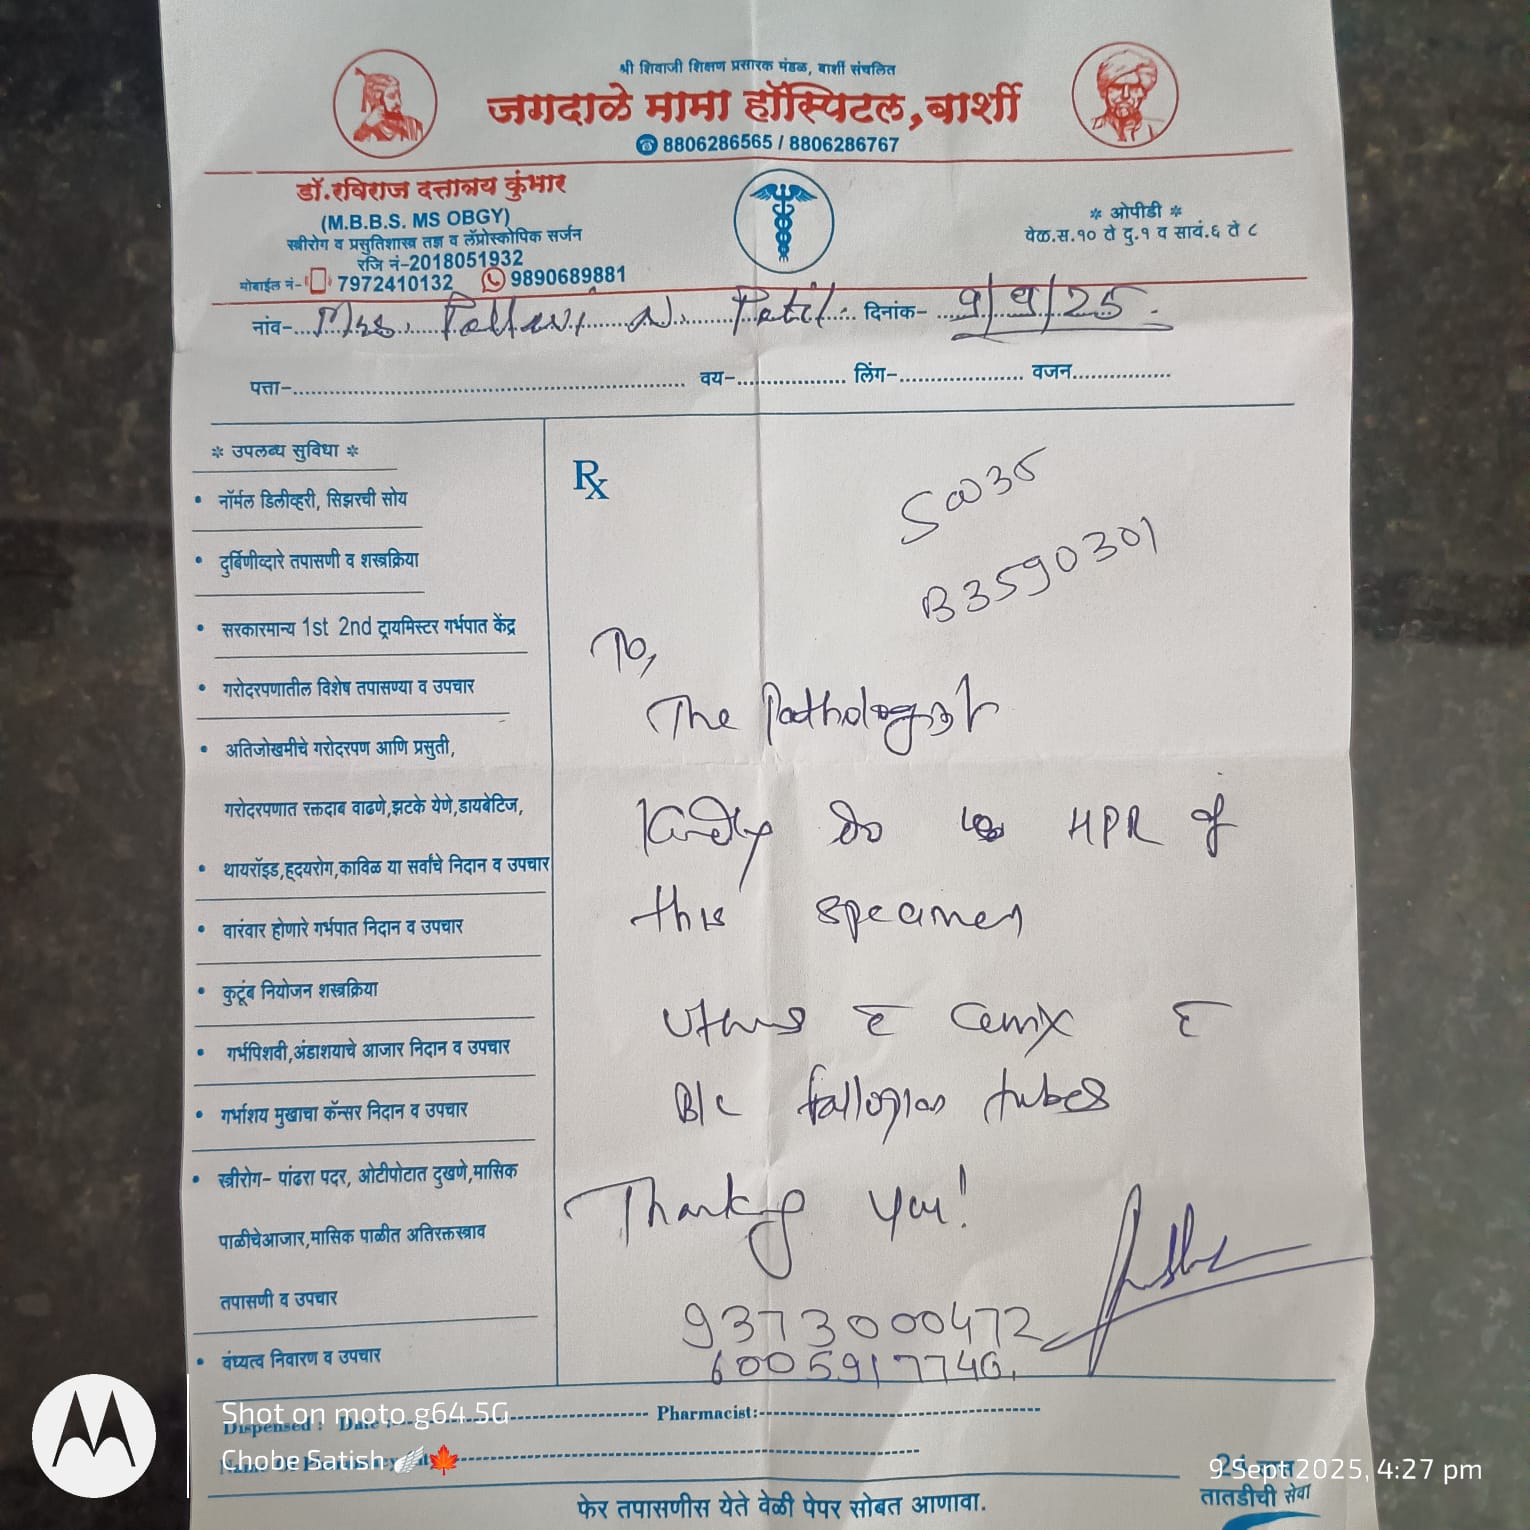 श्री शिवाजी शिक्षण प्रसारक मंडळ, बार्शी संचलित
जगदाळे मामा हॉस्पिटल, बार्शी
8806286565 / 8806286767
डॉ.रविराज दत्तात्रय कुंभार
(M.B.B.S. MS OBGY)
स्त्रीरोग व प्रसुतिशास्त्र तज्ञ व लॅप्रोस्कोपिक सर्जन
रजि नं-2018051932
मोबाईल नं- 7972410132 9890689881
* ओपीडी *
वेळ.स.१० ते दु.१ व सावं.६ ते ८
नांव- Mrs. Pallavi N. Patil. दिनांक- 9/9/25.
पत्ता- वय- लिंग- वजन
* उपलब्ध सुविधा *
• नॉर्मल डिलीव्हरी, सिझरची सोय
• दुर्बिणीव्दारे तपासणी व शस्त्रक्रिया
• सरकारमान्य 1st 2nd ट्रायमिस्टर गर्भपात केंद्र
• गरोदरपणातील विशेष तपासण्या व उपचार
• अतिजोखमीचे गरोदरपण आणि प्रसुती,
गरोदरपणात रक्तदाब वाढणे,झटके येणे,डायबेटिज,
• थायरॉइड,हृदयरोग,काविळ या सर्वांचे निदान व उपचार
• वारंवार होणारे गर्भपात निदान व उपचार
• कुटूंब नियोजन शस्त्रक्रिया
• गर्भपिशवी,अंडाशयाचे आजार निदान व उपचार
• गर्भाशय मुखाचा कॅन्सर निदान व उपचार
• स्त्रीरोग- पांढरा पदर, ओटीपोटात दुखणे,मासिक
पाळीचेआजार,मासिक पाळीत अतिरक्तस्त्राव
तपासणी व उपचार
• वंध्यत्व निवारण व उपचार
Rx
B3590301
To,
The Pathologist
Kindly do HPR of
this specimen
Uterus c̄ Cervix c̄
B/L fallopian tubes
Thank you!
9373000472
6005917746.
Dispensed : Date :- Pharmacist:-
फेर तपासणीस येते वेळी पेपर सोबत आणावा.
तातडीची सेवा
Shot on moto g64 5G
Chobe Satish
9 Sept 2025, 4:27 pm